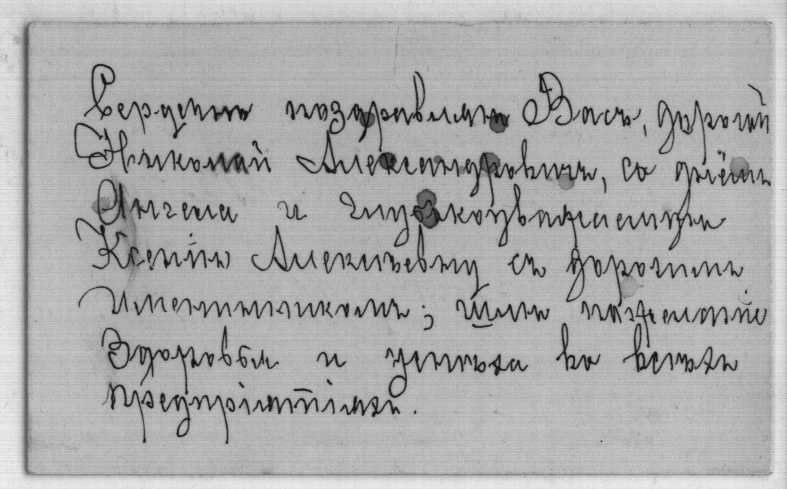 Сердечно поздравляю Васъ, дорогой
Николай Александровичъ, со днёмъ
Ангела и глубокоуважаемую
Ксенію Алексѣевну съ дорогимъ
Имениникомъ; шлю пожеланіе
Здоровья и успѣха во всѣхъ
предпріятіяхъ.